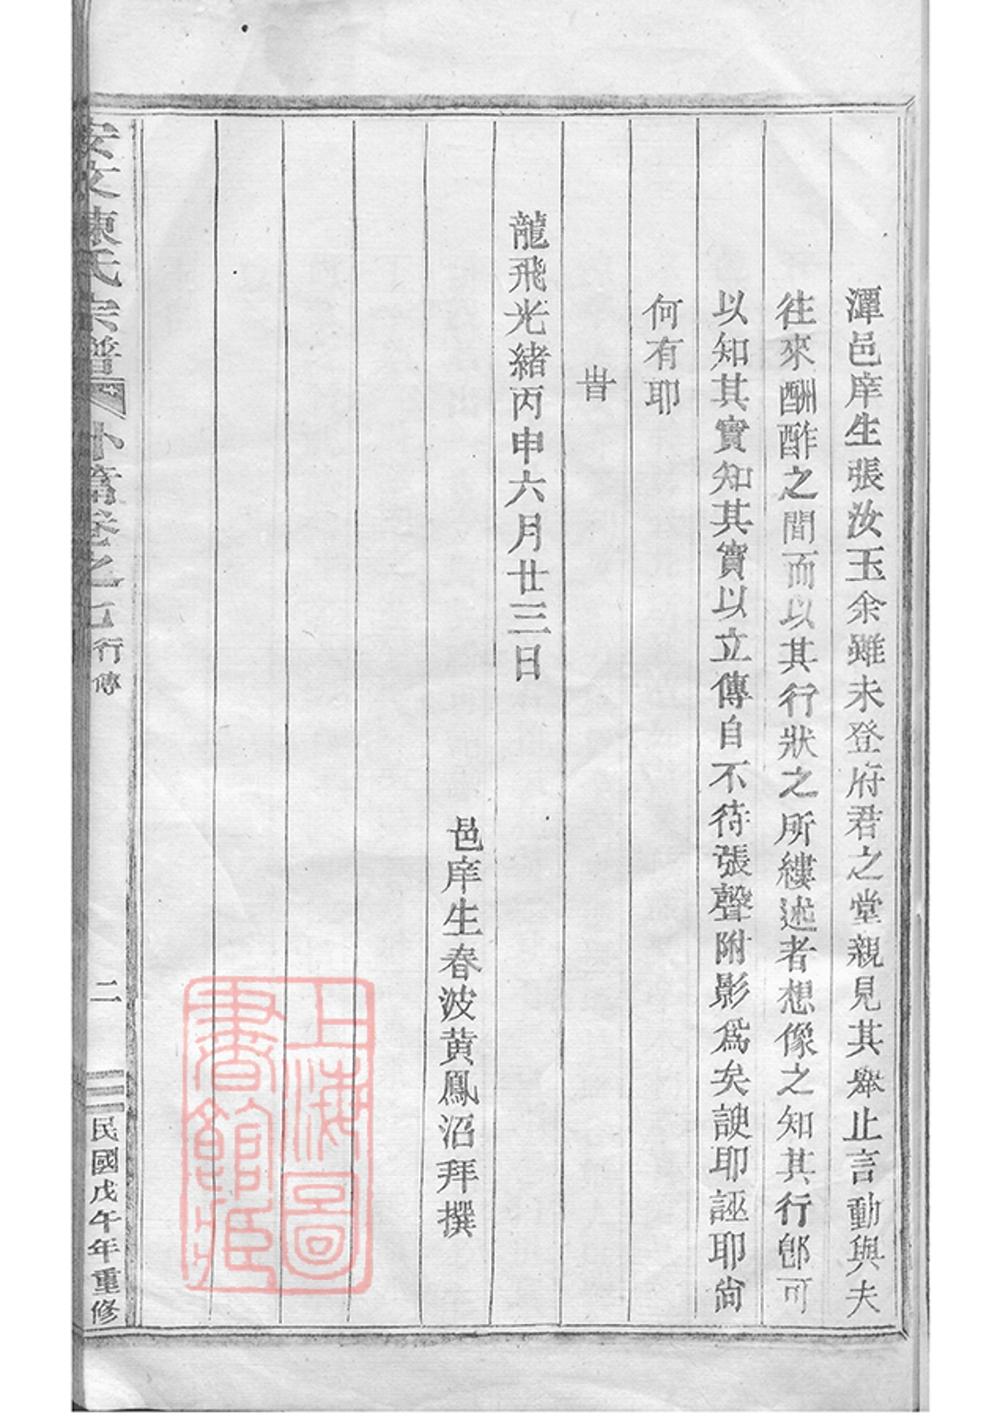 潭邑庠生張汝玉余雖未登府君之堂親見其舉止言動與夫
往來酬酢之間而以其行狀之所縷述者想像之知其行卽可
以知其實知其實以立傳自不待張聲附影爲矣諛耶誣耶尙
何有耶
旹
龍飛光緒丙申六月廿三日
邑庠生春波黄鳳沼拜撰
安文陳氏宗譜
外篇卷之七
行傳
二
民國戊午年重修
上海圖
書館藏